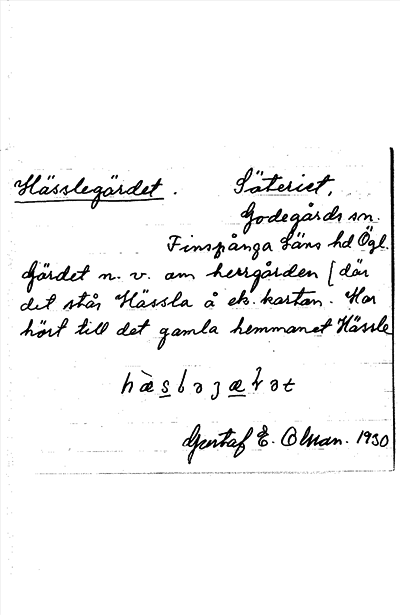 Hässlegärdet. Säteriet,
Godegårds sn.
Finspånga Läns hd Ögl.
Gärdet n. v. om herrgården [där
det står Hässla å ek. kartan. Har
hört till det gamla hemmanet Hässle
Gustaf E. Olsson. 1930